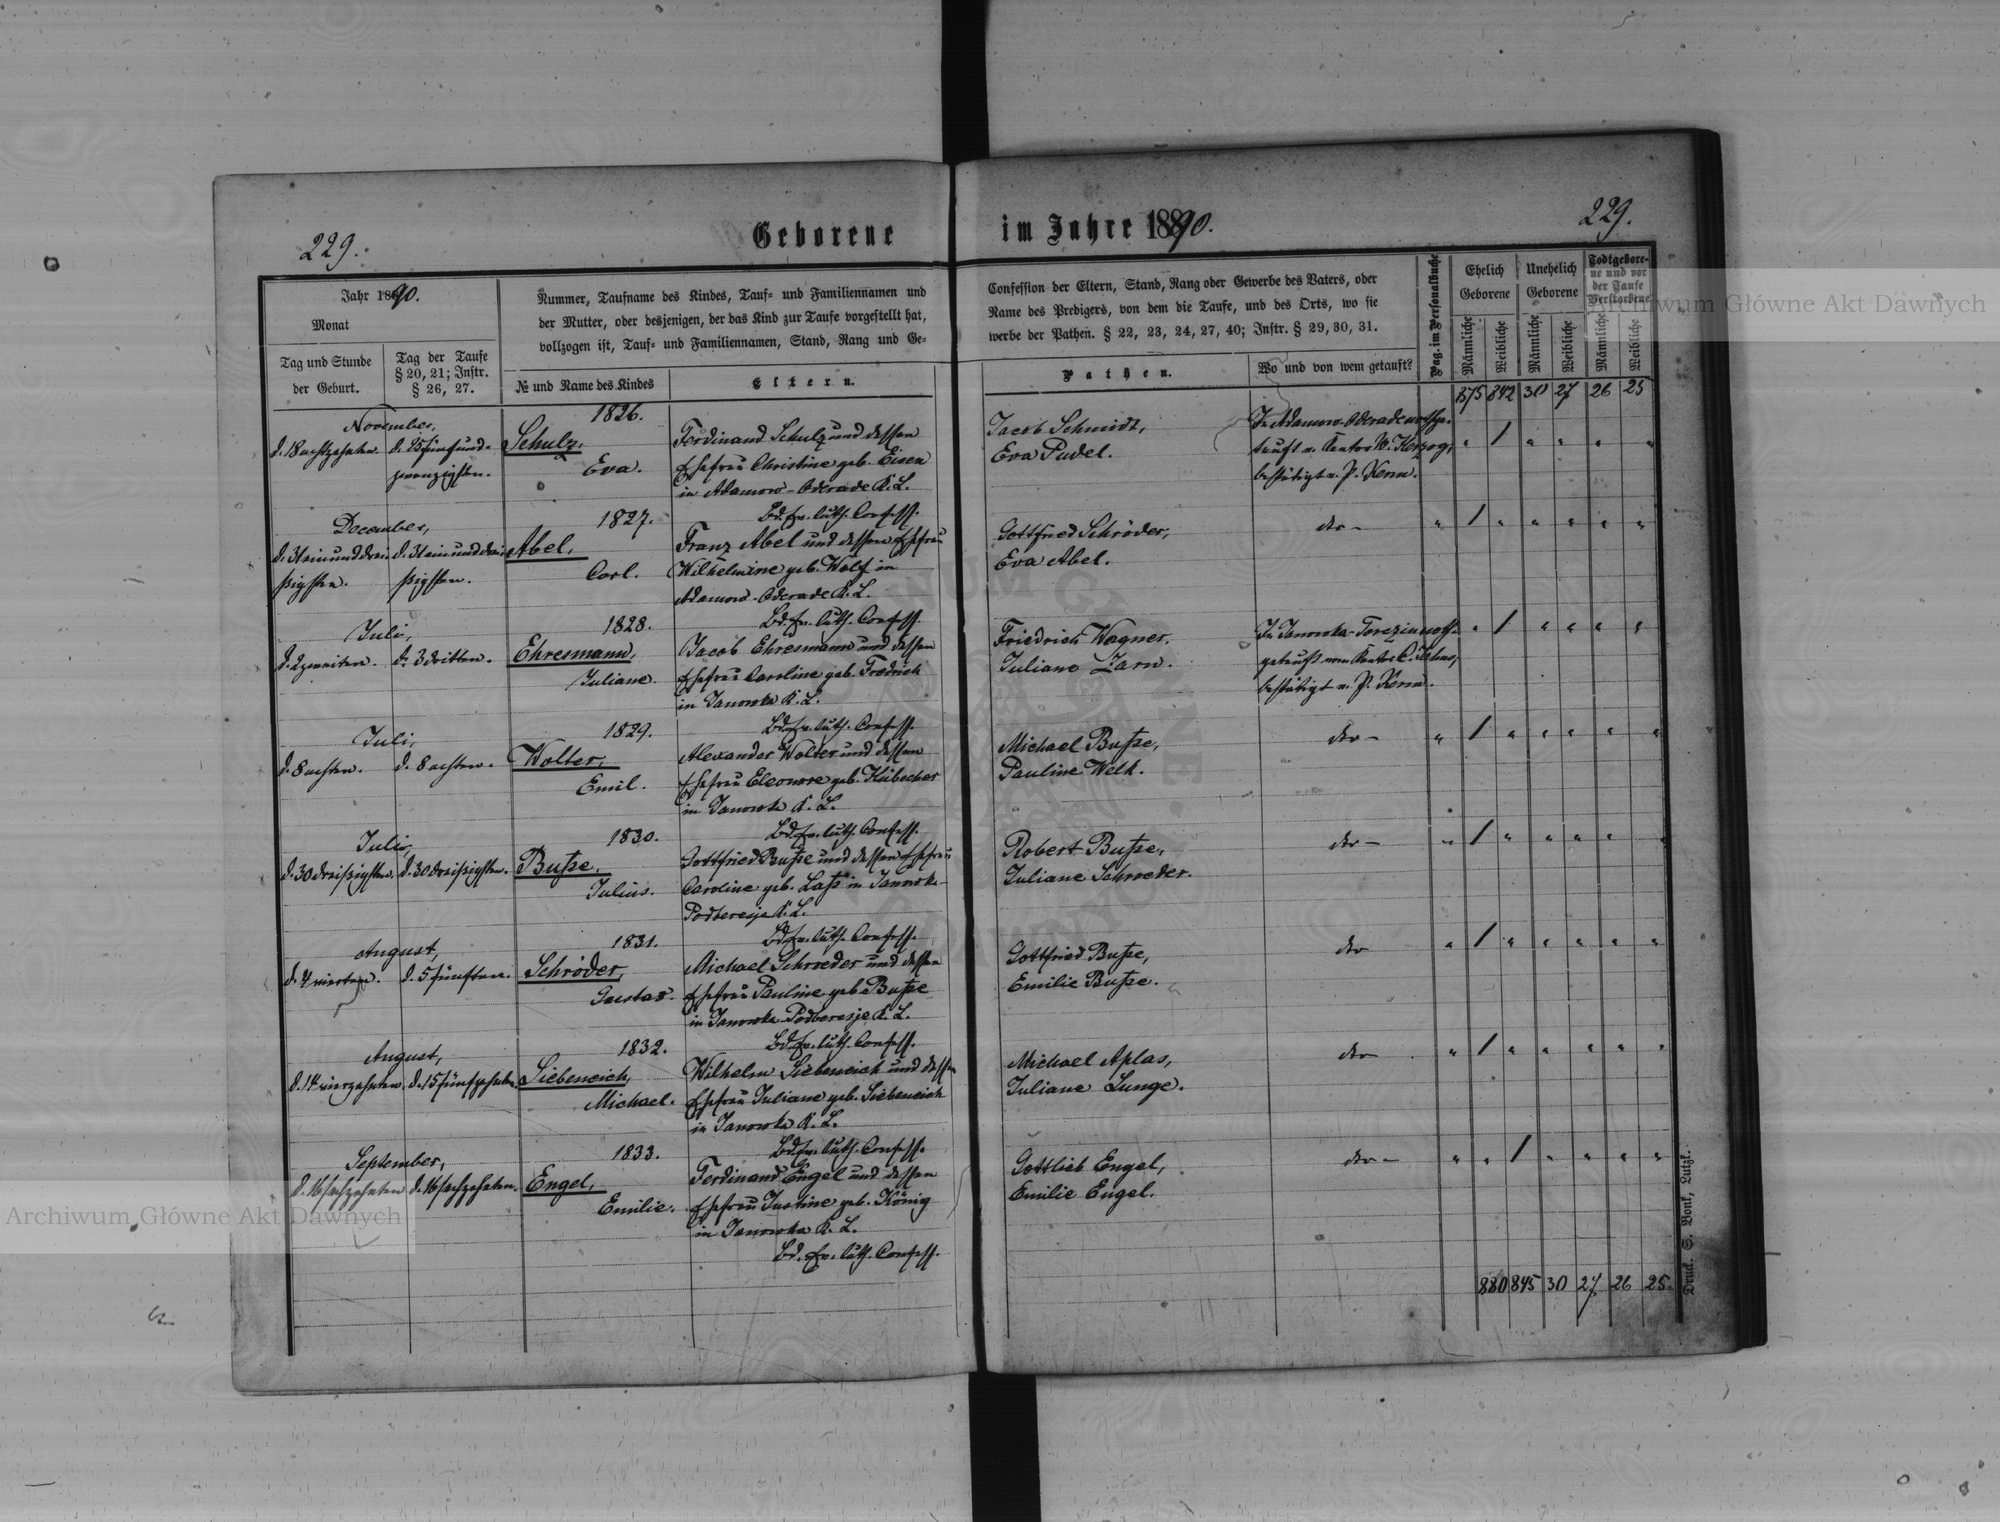 229.
Geborene
im Jahre 1890.
229.
Jahr 1890.
Monat
Tag und Stunde
der Geburt.
Tag der Taufe
§ 20, 21; Instr.
§ 26, 27.
Nummer, Taufname des Kindes, Tauf- und Familiennamen und
der Mutter, oder desjenigen, der das Kind zur Taufe vorgestellt hat,
vollzogen ist, Tauf- und Familiennamen, Stand, Rang und Ge-
№ und Name des Kindes
Eltern.
Confession der Eltern, Stand, Rang oder Gewerbe des Vaters, oder
Name des Predigers, von dem die Taufe, und des Orts, wo sie
werbe der Pathen. § 22, 23, 24, 27, 40; Instr. § 29, 30, 31.
Pathen.
Wo und von wem getauft?
Pag. im Personalbuche
Ehelich
Geborene
Unehelich
Geborene
Todtgebore-
ne und vor
der Taufe
Verstorbene
Männliche
Weibliche
Männliche
Weibliche
Männliche
Weibliche
875 842 30 27 26 25
November,
d. 18 achtzehnten.
d. 25 fünfund-
zwanzigsten.
1826.
Schulz,
Eva.
Ferdinand Schulz und dessen
Ehefrau Christine geb. Eisen
in Adamow-Oderade K. L.
Bd. Ev. luth. Confess.
Jacob Schmidt,
Eva Pudel.
In Adamow-Oderade nothge-
tauft v. Kantor W. Herzog,
bestätigt v. P. Kerm.
" / " " " "
December,
d. 31 einunddrei-
ßigsten.
d. 31 einunddrei-
ßigsten.
1827.
Abel,
Carl.
Franz Abel und dessen Ehefrau
Wilhelmine geb. Wolf in
Adamow-Oderade K. L.
Bd. Ev. luth. Confess.
Gottfried Schröder,
Eva Abel.
dto -
" / " " " " "
Juli,
d. 2 zweiten.
d. 3 dritten.
1828.
Ehresmann,
Juliane.
Jacob Ehresmann und dessen
Ehefrau Caroline geb. Fredrich
in Janowka K. L.
Bd. Ev. luth. Confess.
Friedrich Wagner,
Juliane Zarn.
In Janowka-Torczin noth-
getauft vom Kantor
bestätigt v. P. Kerm.
" / " " " "
Juli,
d. 8 achten.
d. 8 achten.
1829.
Wolter,
Emil.
Alexander Wolter und dessen
Ehefrau Eleonore geb. Hübscher
in Janowka K. L.
Bd. Ev. luth. Confess.
Michael Buße,
Pauline Welk.
dto -
" / " " " " "
Juli,
d. 30 dreißigsten.
d. 30 dreißigsten.
1830.
Buße,
Julius.
Gottfried Buße und dessen Ehefrau
Caroline geb. Laß in Janowka-
Podberesje K. L.
Bd. Ev. luth. Confess.
Robert Buße,
Juliane Schroeder.
dto -
" / " " " " "
August,
d. 4 vierten.
d. 5 fünften.
1831.
Schröder,
Gustav.
Michael Schroeder und dessen
Ehefrau Pauline geb. Buße
in Janowka-Podberesje K. L.
Bd. Ev. luth. Confess.
Gottfried Buße,
Emilie Buße.
dto
" / " " " " "
August,
d. 14 vierzehnten.
d. 15 fünfzehnten.
1832.
Siebeneich,
Michael.
Wilhelm Siebeneich und dessen
Ehefrau Juliane geb. Siebeneich
in Janowka K. L.
Bd. Ev. luth. Confess.
Michael Aplas,
Juliane Lunge.
dto
" / " " " " "
September,
d. 16 sechzehnten
d. 16 sechzehnten.
1833.
Engel,
Emilie.
Ferdinand Engel und dessen
Ehefrau Justine geb. König
in Janowka K. L.
Bd. Ev. luth. Confess.
Gottlieb Engel,
Emilie Engel.
dto -
" " / " " " "
880 845 30 27 26 25.
Druck. S. Bonk, Lutzk.
Archiwum Główne Akt Dawnych
Archiwum Główne Akt Dawnych